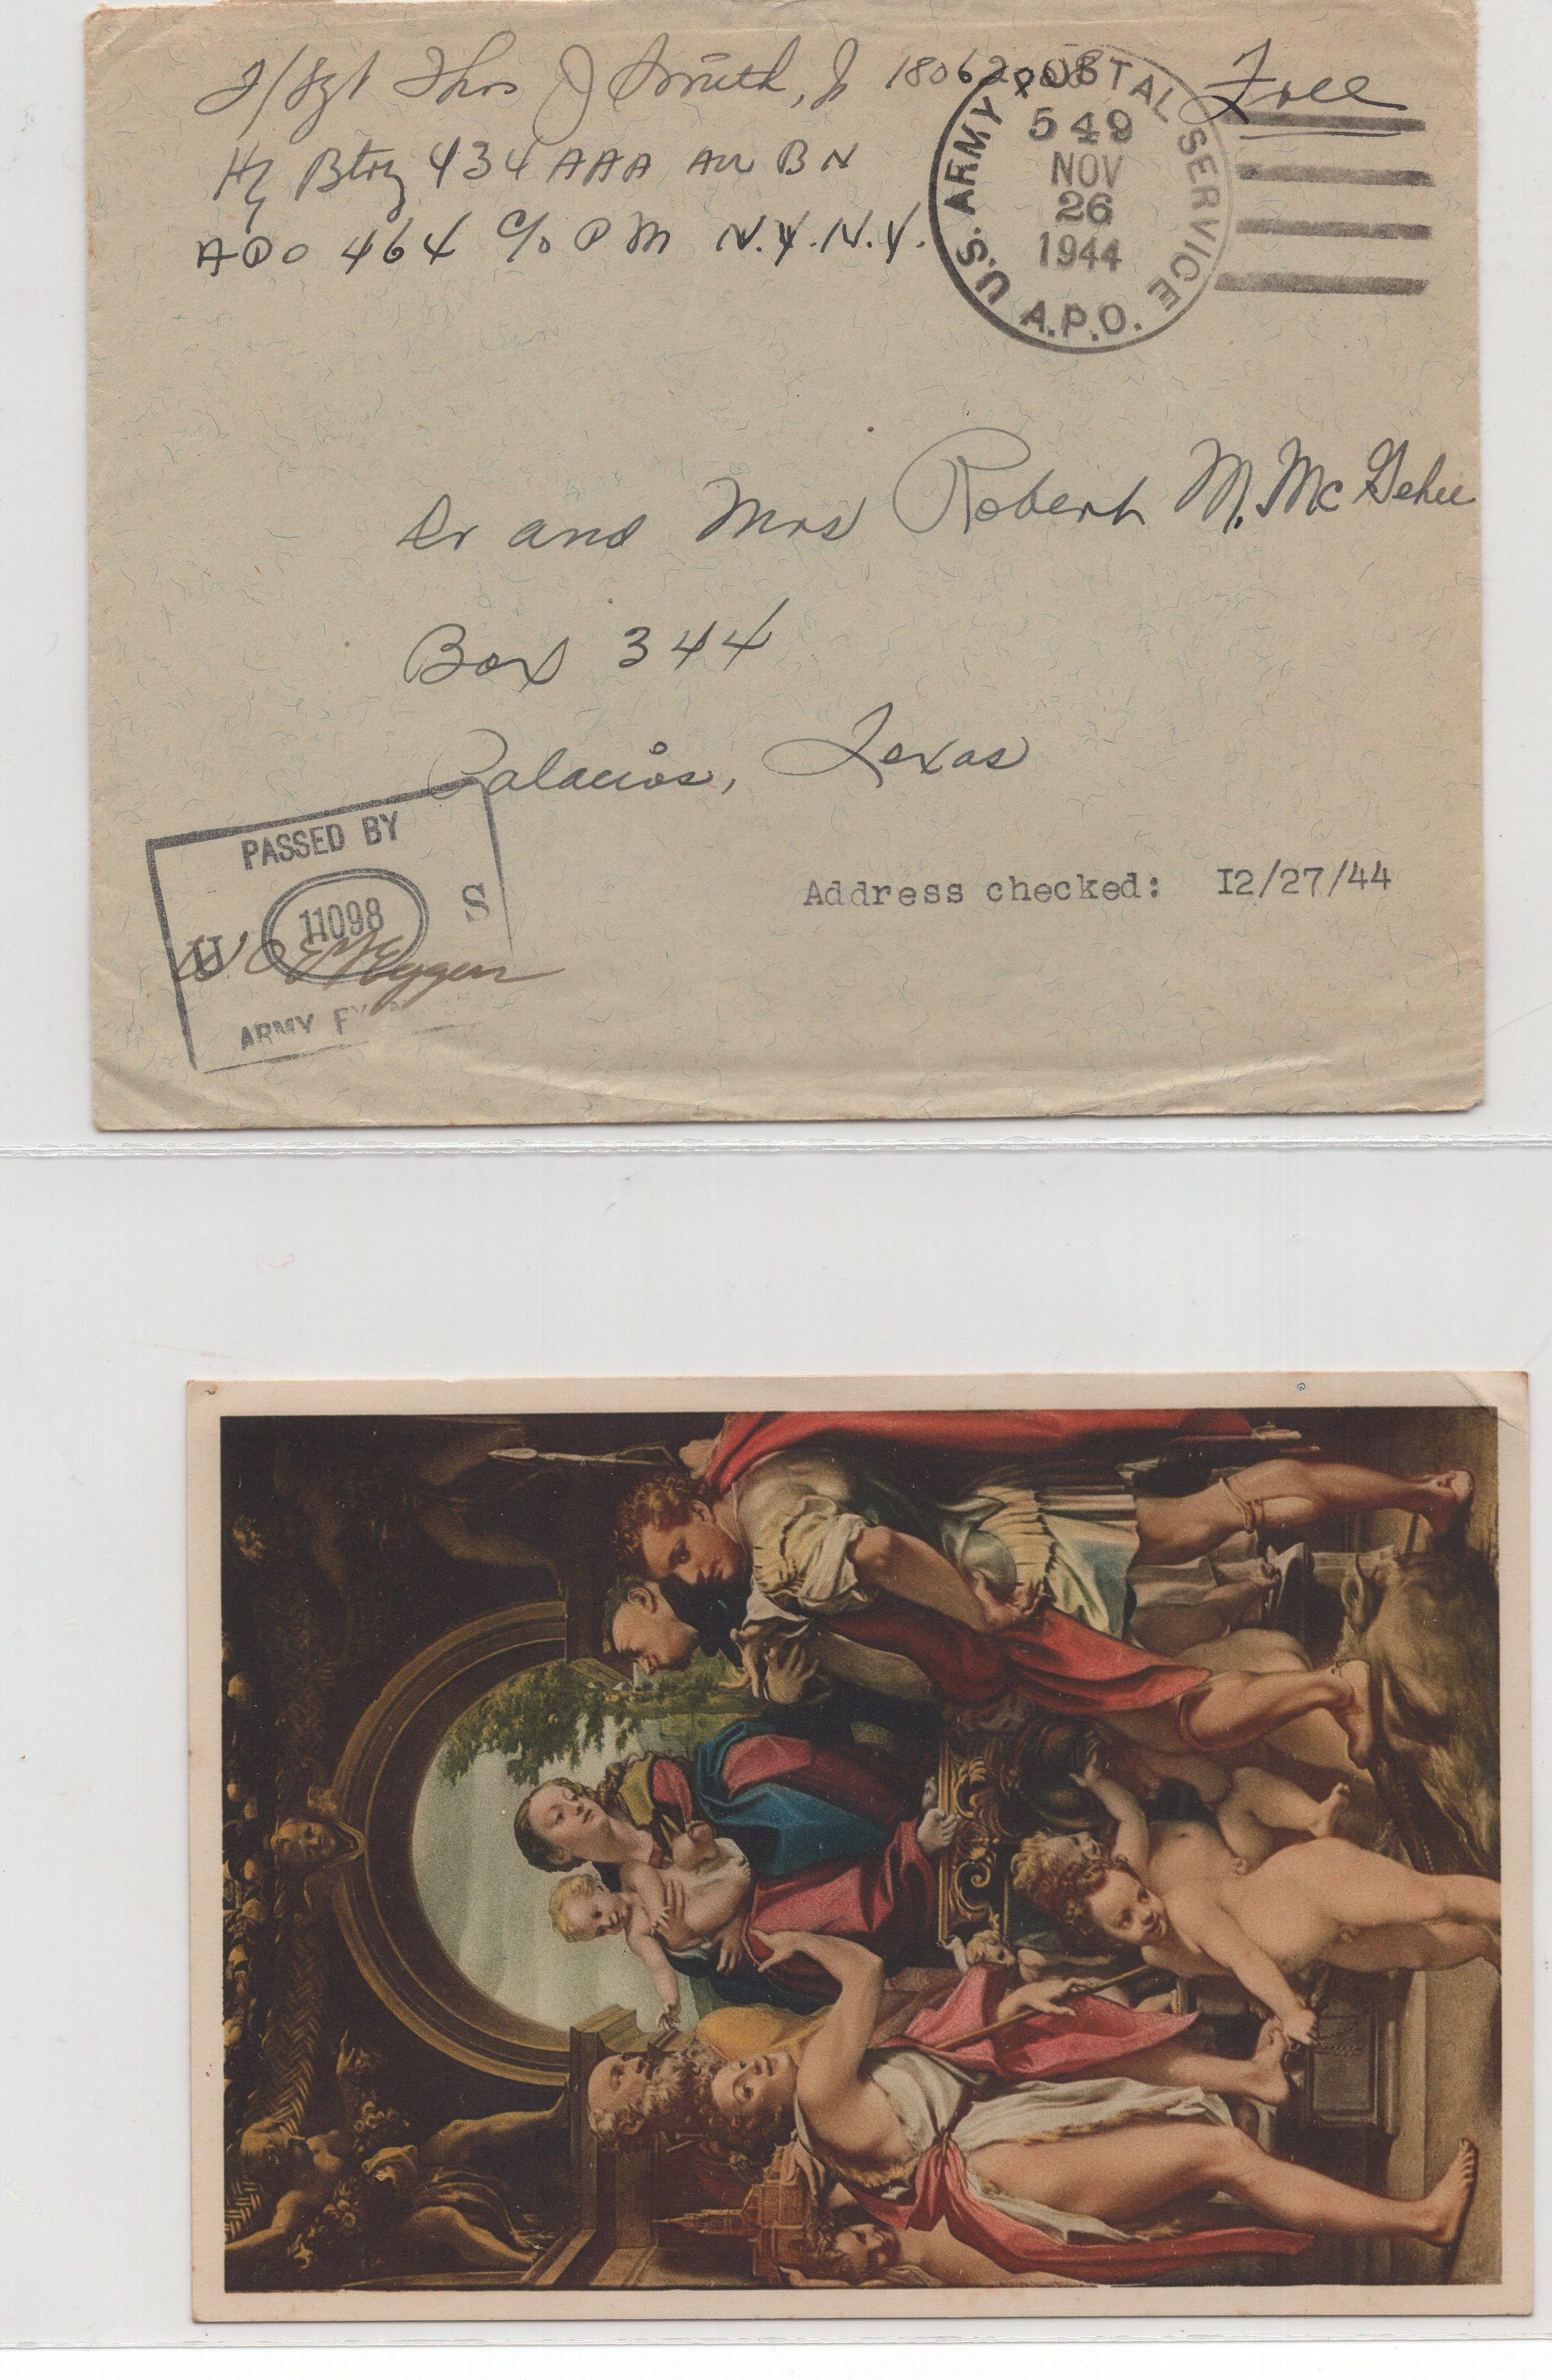 T/Sgt Thos J Smith, Jr 18062808 Free
Hq Btry 434 AAA AW BN
APO 464 C/o PM N.Y. N.Y.
U.S. ARMY POSTAL SERVICE
549
NOV
26
1944
A.P.O.
Dr and Mrs Robert M. McGehee
Box 344
Palacios, Texas
Address checked: I2/27/44
PASSED BY
U 11098 S
ARMY